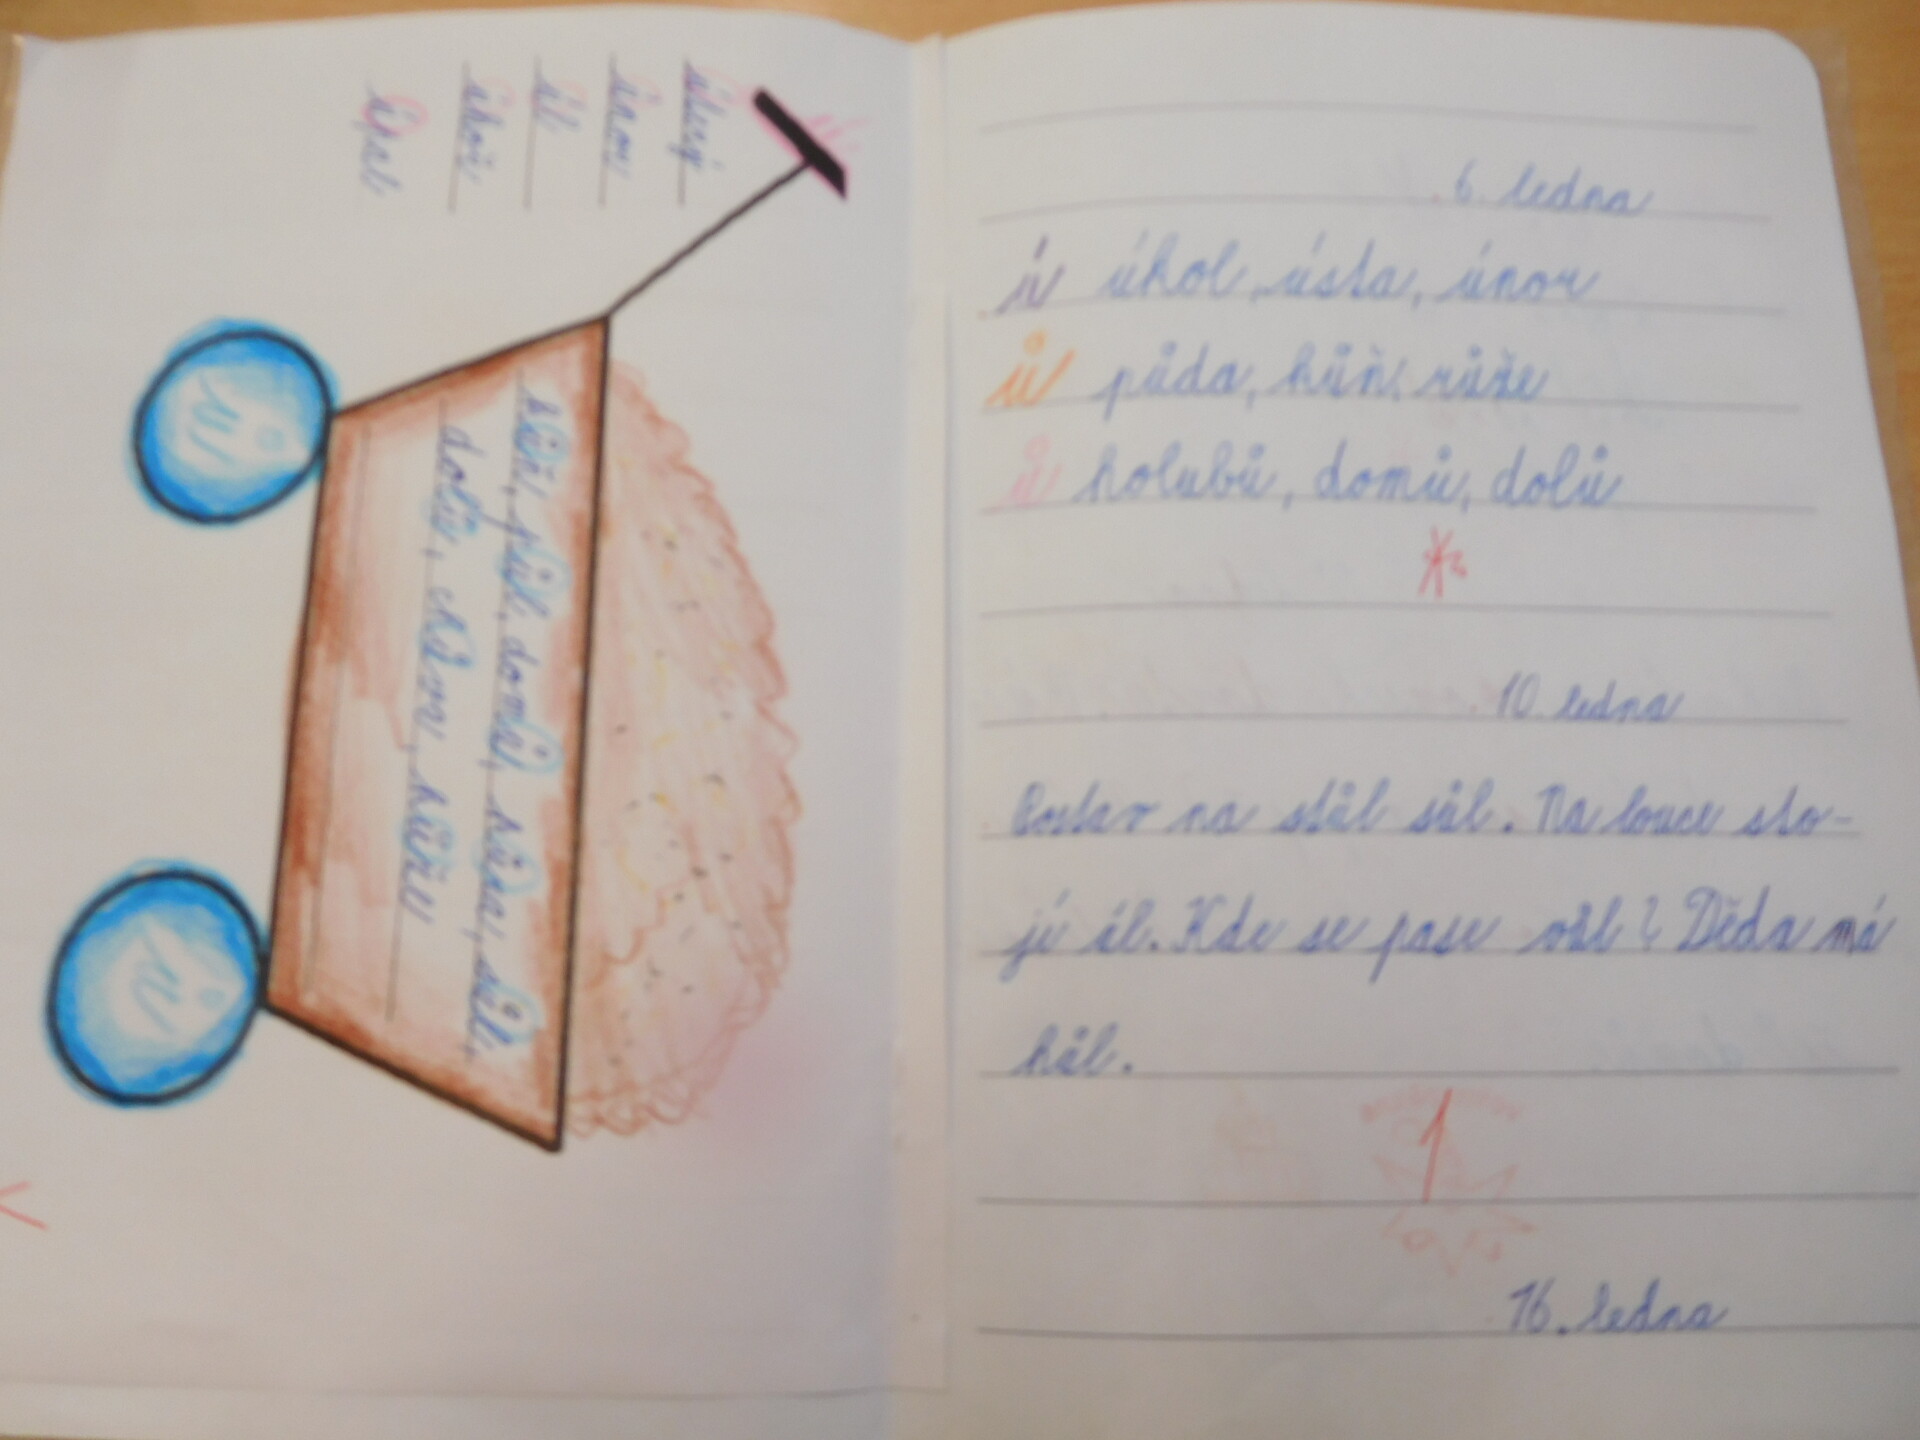 úterý
únor
úl
úhoř
úpal
ů
ů
kůň, půl, domů, kůra, sůl,
dolů, chůva, kůže
6. ledna
ú úkol, ústa, únor
ů půda, kůň, růže
ů holubů, domů, dolů
10. ledna
Postav na stůl sůl. Na louce sto-
jí úl. Kde se pase vůl? Děda má
hůl.
1
16. ledna